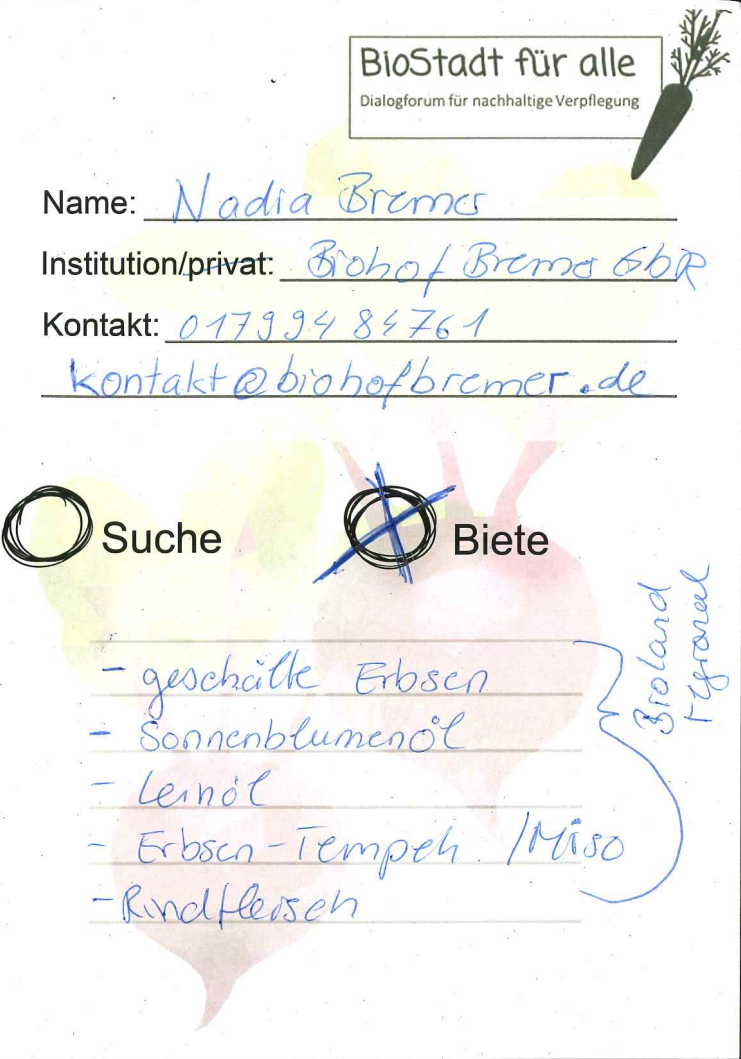 BioStadt für alle
Dialogforum für nachhaltige Verpflegung
Name: Nadia Bremer
Institution/privat: Biohof Bremer GbR
Kontakt: 0179 94 84 76 1
kontakt@biohofbremer.de
Suche
Biete
- geschälte Erbsen
- Sonnenblumenöl
- Leinöl
- Erbsen-Tempeh /Miso
- Rindfleisch
Bioland
regional